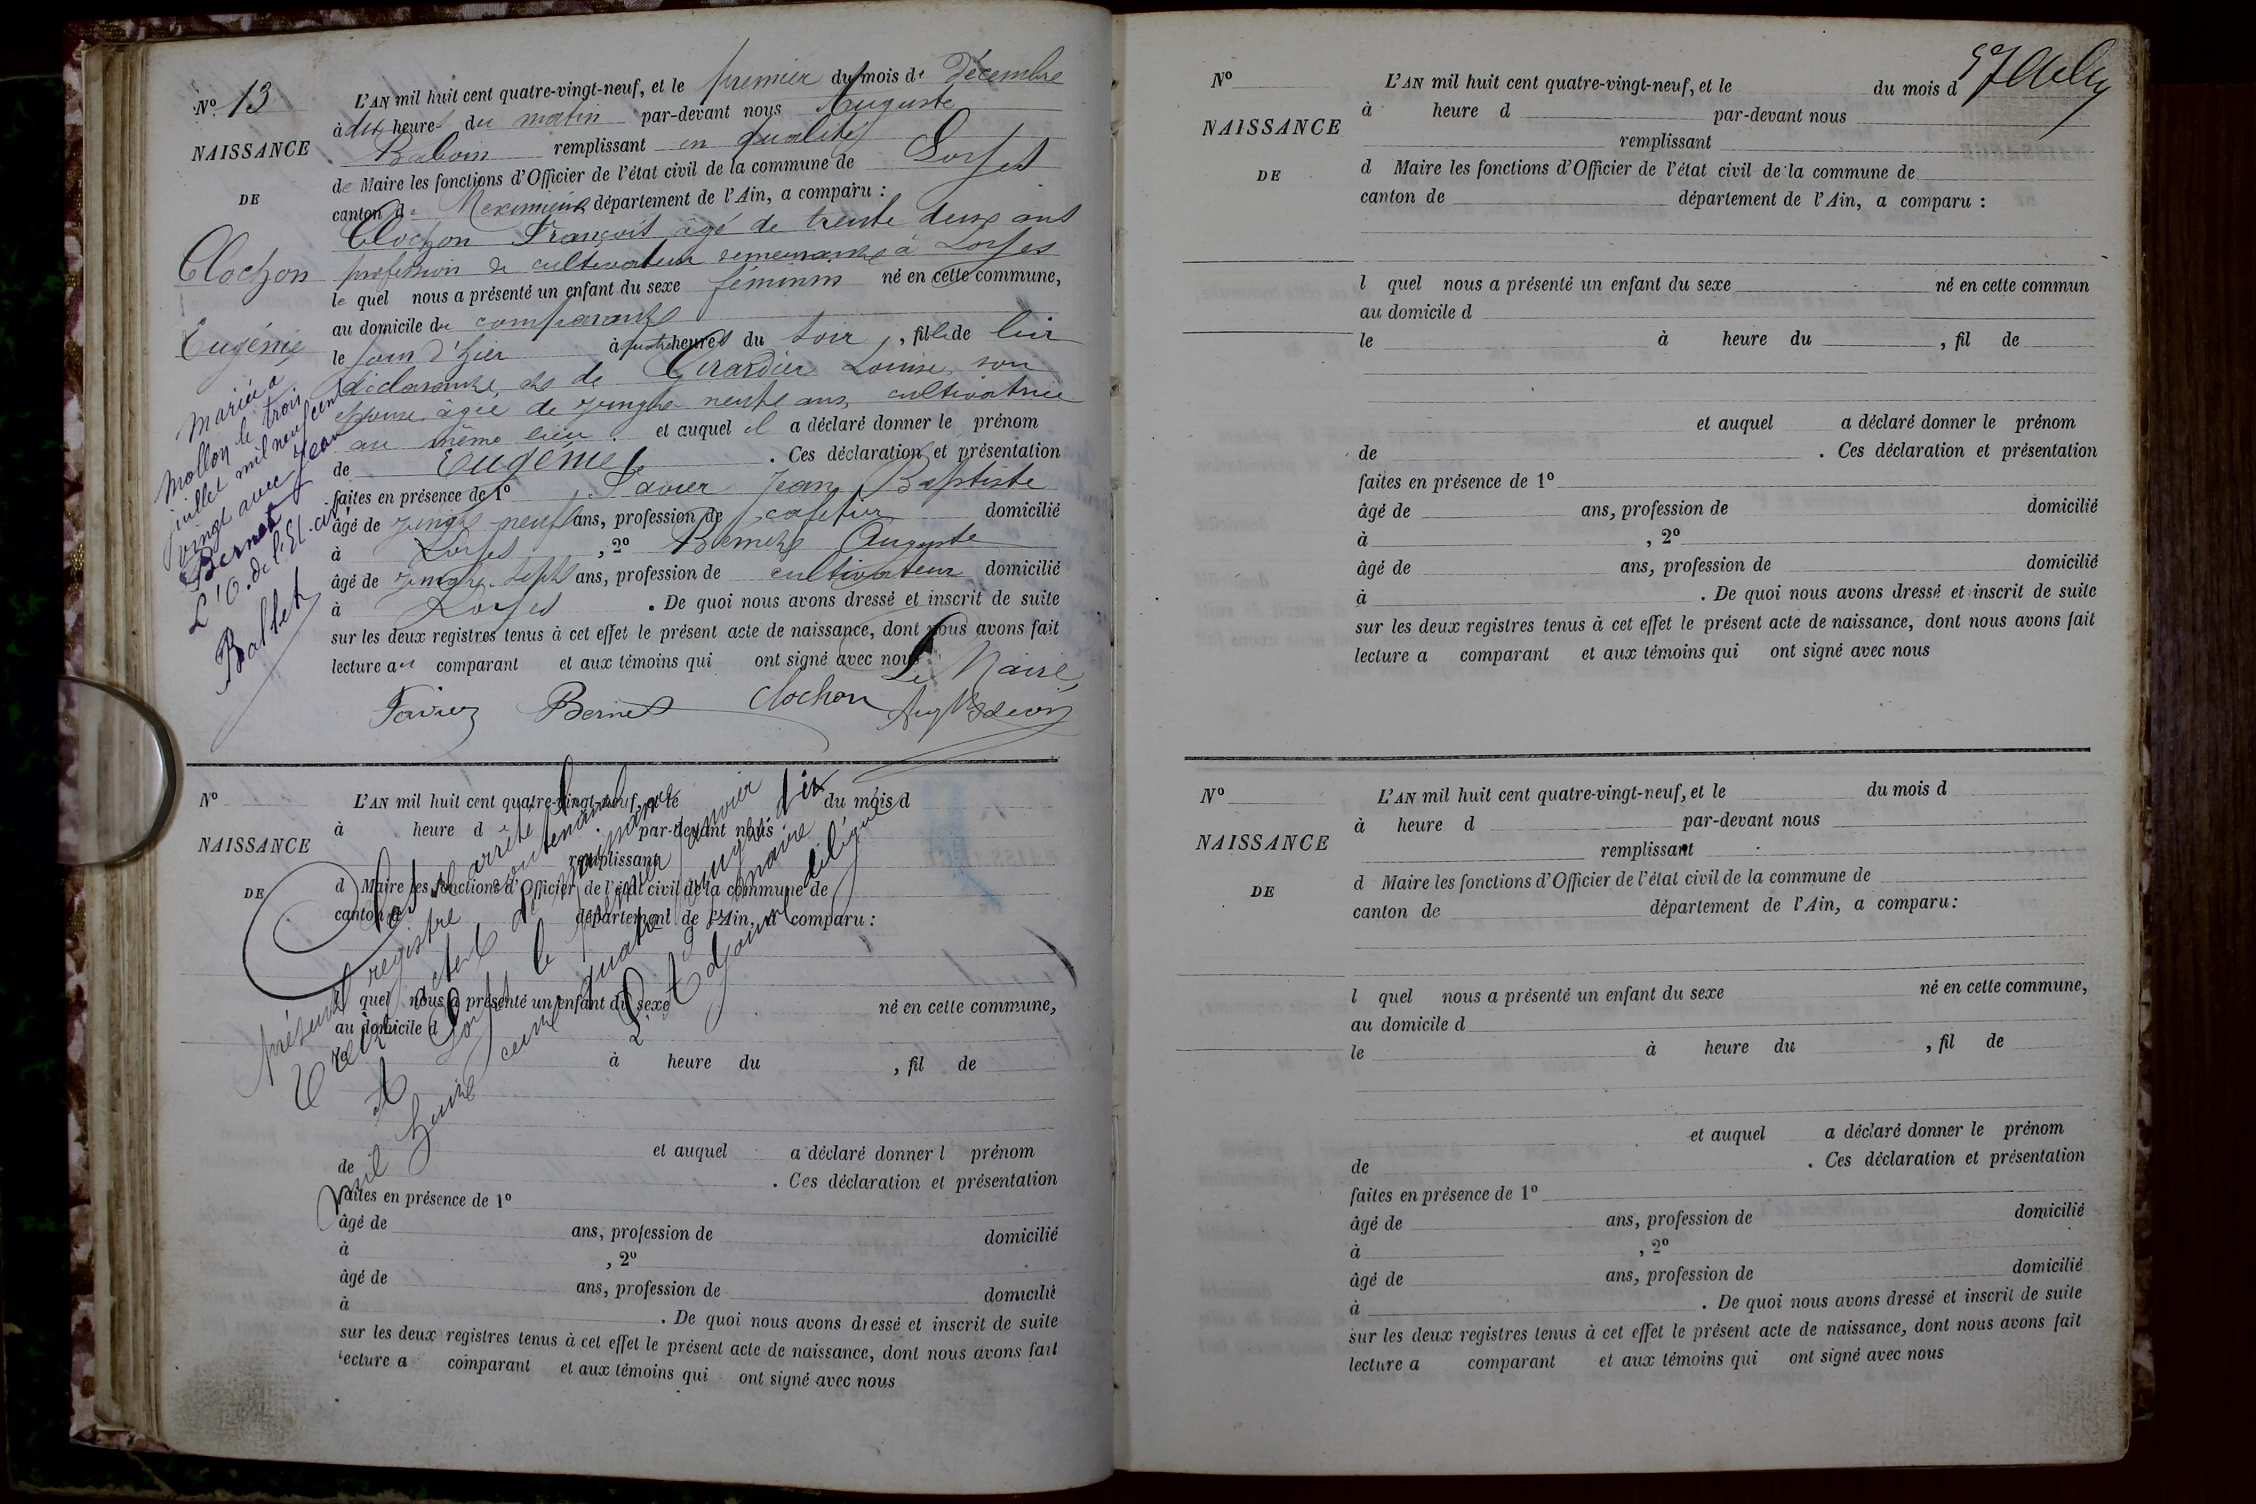 Nº 13
NAISSANCE
DE
Clochon
Eugénie
Mariée à
Mollon le trois
juillet mil neuf cent
vingt avec Jean
Bernet
L'O. de l'Et. civil
L'AN mil huit cent quatre-vingt-neuf, et le premier du mois de décembre
à dix heures du matin par-devant nous Auguste
remplissant en qualité
de Maire les fonctions d'Officier de l'état civil de la commune de
canton de Meximieux département de l'Ain, a comparu :
Clochon François âgé de trente deux ans
profession de cultivateur demeurant à
lequel nous a présenté un enfant du sexe féminin né en cette commune,
au domicile du comparant
le jour d'hier à quatre heures du soir, fille de lui
déclarant, et de Girardier Louise, son
épouse, âgée de vingt neuf ans, cultivatrice
au même lieu. et auquel il a déclaré donner le prénom
de Eugénie. Ces déclaration et présentation
faites en présence de 1º Jean Baptiste
âgé de vingt neuf ans, profession de cafetier domicilié
à , 2º Auguste
âgé de vingt-sept ans, profession de cultivateur domicilié
à . De quoi nous avons dressé et inscrit de suite
sur les deux registres tenus à cet effet le présent acte de naissance, dont nous avons fait
lecture au comparant et aux témoins qui ont signé avec nous
Le Maire,
Bernet Clochon
Nº
NAISSANCE
DE
L'AN mil huit cent quatre-vingt-neuf, et le du mois d
à heure d par-devant nous
remplissant
d Maire les fonctions d'Officier de l'état civil de la commune de
canton de département de l'Ain, a comparu :
l quel nous a présenté un enfant du sexe né en cette commune,
au domicile d
le à heure du , fil de
et auquel a déclaré donner l prénom
de . Ces déclaration et présentation
faites en présence de 1º
âgé de ans, profession de domicilié
à , 2º
âgé de ans, profession de domicilié
à . De quoi nous avons dressé et inscrit de suite
sur les deux registres tenus à cet effet le présent acte de naissance, dont nous avons fait
lecture a comparant et aux témoins qui ont signé avec nous
arrêté le
présent registre contenant
treize actes de naissance
et le premier janvier
mil huit cent quatre vingt dix
L'Adjoint délégué
Nº
NAISSANCE
DE
L'AN mil huit cent quatre-vingt-neuf, et le du mois d
à heure d par-devant nous
remplissant
d Maire les fonctions d'Officier de l'état civil de la commune de
canton de département de l'Ain, a comparu :
l quel nous a présenté un enfant du sexe né en cette commun
au domicile d
le à heure du , fil de
et auquel a déclaré donner le prénom
de . Ces déclaration et présentation
faites en présence de 1º
âgé de ans, profession de domicilié
à , 2º
âgé de ans, profession de domicilié
à . De quoi nous avons dressé et inscrit de suite
sur les deux registres tenus à cet effet le présent acte de naissance, dont nous avons fait
lecture a comparant et aux témoins qui ont signé avec nous
Nº
NAISSANCE
DE
L'AN mil huit cent quatre-vingt-neuf, et le du mois d
à heure d par-devant nous
remplissant
d Maire les fonctions d'Officier de l'état civil de la commune de
canton de département de l'Ain, a comparu :
l quel nous a présenté un enfant du sexe né en cette commune,
au domicile d
le à heure du , fil de
et auquel a déclaré donner le prénom
de . Ces déclaration et présentation
faites en présence de 1º
âgé de ans, profession de domicilié
à , 2º
âgé de ans, profession de domicilié
à . De quoi nous avons dressé et inscrit de suite
sur les deux registres tenus à cet effet le présent acte de naissance, dont nous avons fait
lecture a comparant et aux témoins qui ont signé avec nous